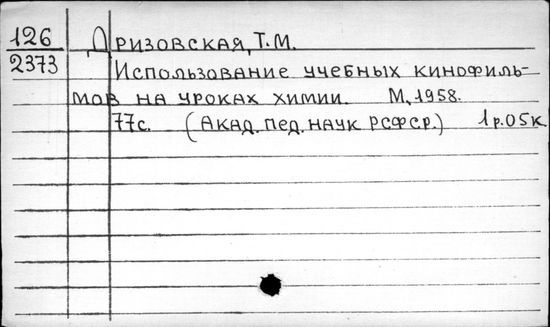 126 Дризовская, Т.М.
2373 Использование учебных кинофиль-
мов на уроках химии. М., 1958.
77с. (Акад. пед. наук РСФСР.) 1р.05к